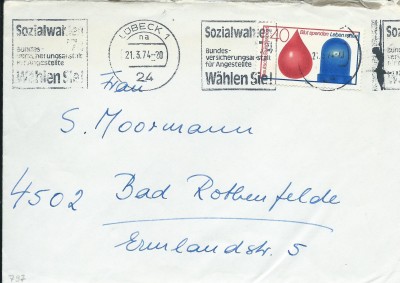 Sozialwahlen
Bundes-
versicherungsanstalt
für Angestellte
Wählen Sie!
LÜBECK 1
na
21.3.74-20
24
Sozialwahlen
Bundes-
versicherungsanstalt
für Angestellte
Wählen Sie!
40
Blut spenden Leben retten
Frau
S. Moormann
4502 Bad Rothenfelde
Ermlandstr. 5
797